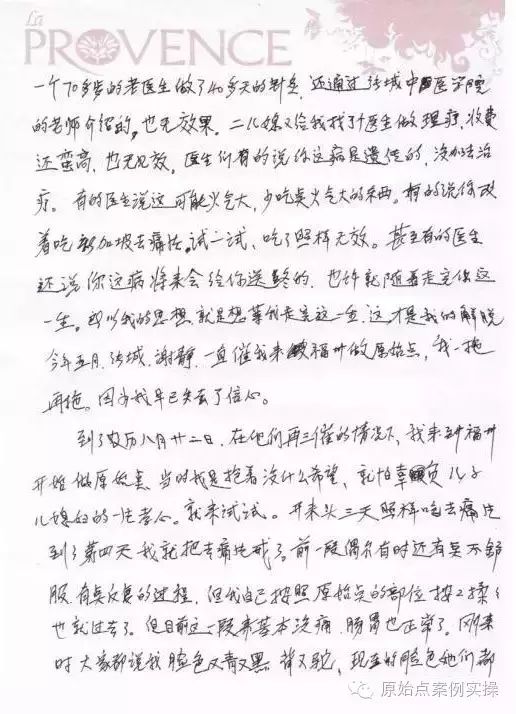 La
PROVENCE
一个70多岁的老医生做了40多天的针灸,还通过张城中医学院
的老师介绍的,也无效果。二儿媳又给我找了医生做理疗,收费
还蛮高,也无见效。医生们有的说你这病是遗传的,没办法治
疗。有的医生说这可能火气大,少吃点火气大的东西。有的说你改
着吃新加坡去痛片,试一试,吃了照样无效。甚至有的医生
还说你这病将来会给你送终的,也许就随着走完你这
一生。所以我的思想就是想等我走完这一生,这才是我的解脱
今年五月,张城、谢静一直催我来福州做原始点,我一拖
再拖。因为我早已失去了信心。
到了农历八月廿二日,在他们再三催的情况下,我来到福州
开始做原始点,当时我是抱着没什么希望,就怕辜负儿子
儿媳妇的一片孝心。就来试试。开来头三天照样吃去痛片
到了第四天我就把去痛片戒了。前一段偶尔有时还有点不舒
服,有点反复的过程,但我自己按照原始点的部位按按揉揉
也就过去了。但目前这一段来基本没痛,肠胃也正常了。刚来
时大家都说我脸色又青又黑,背又驼,现在的脸色她们都
原始点案例实操